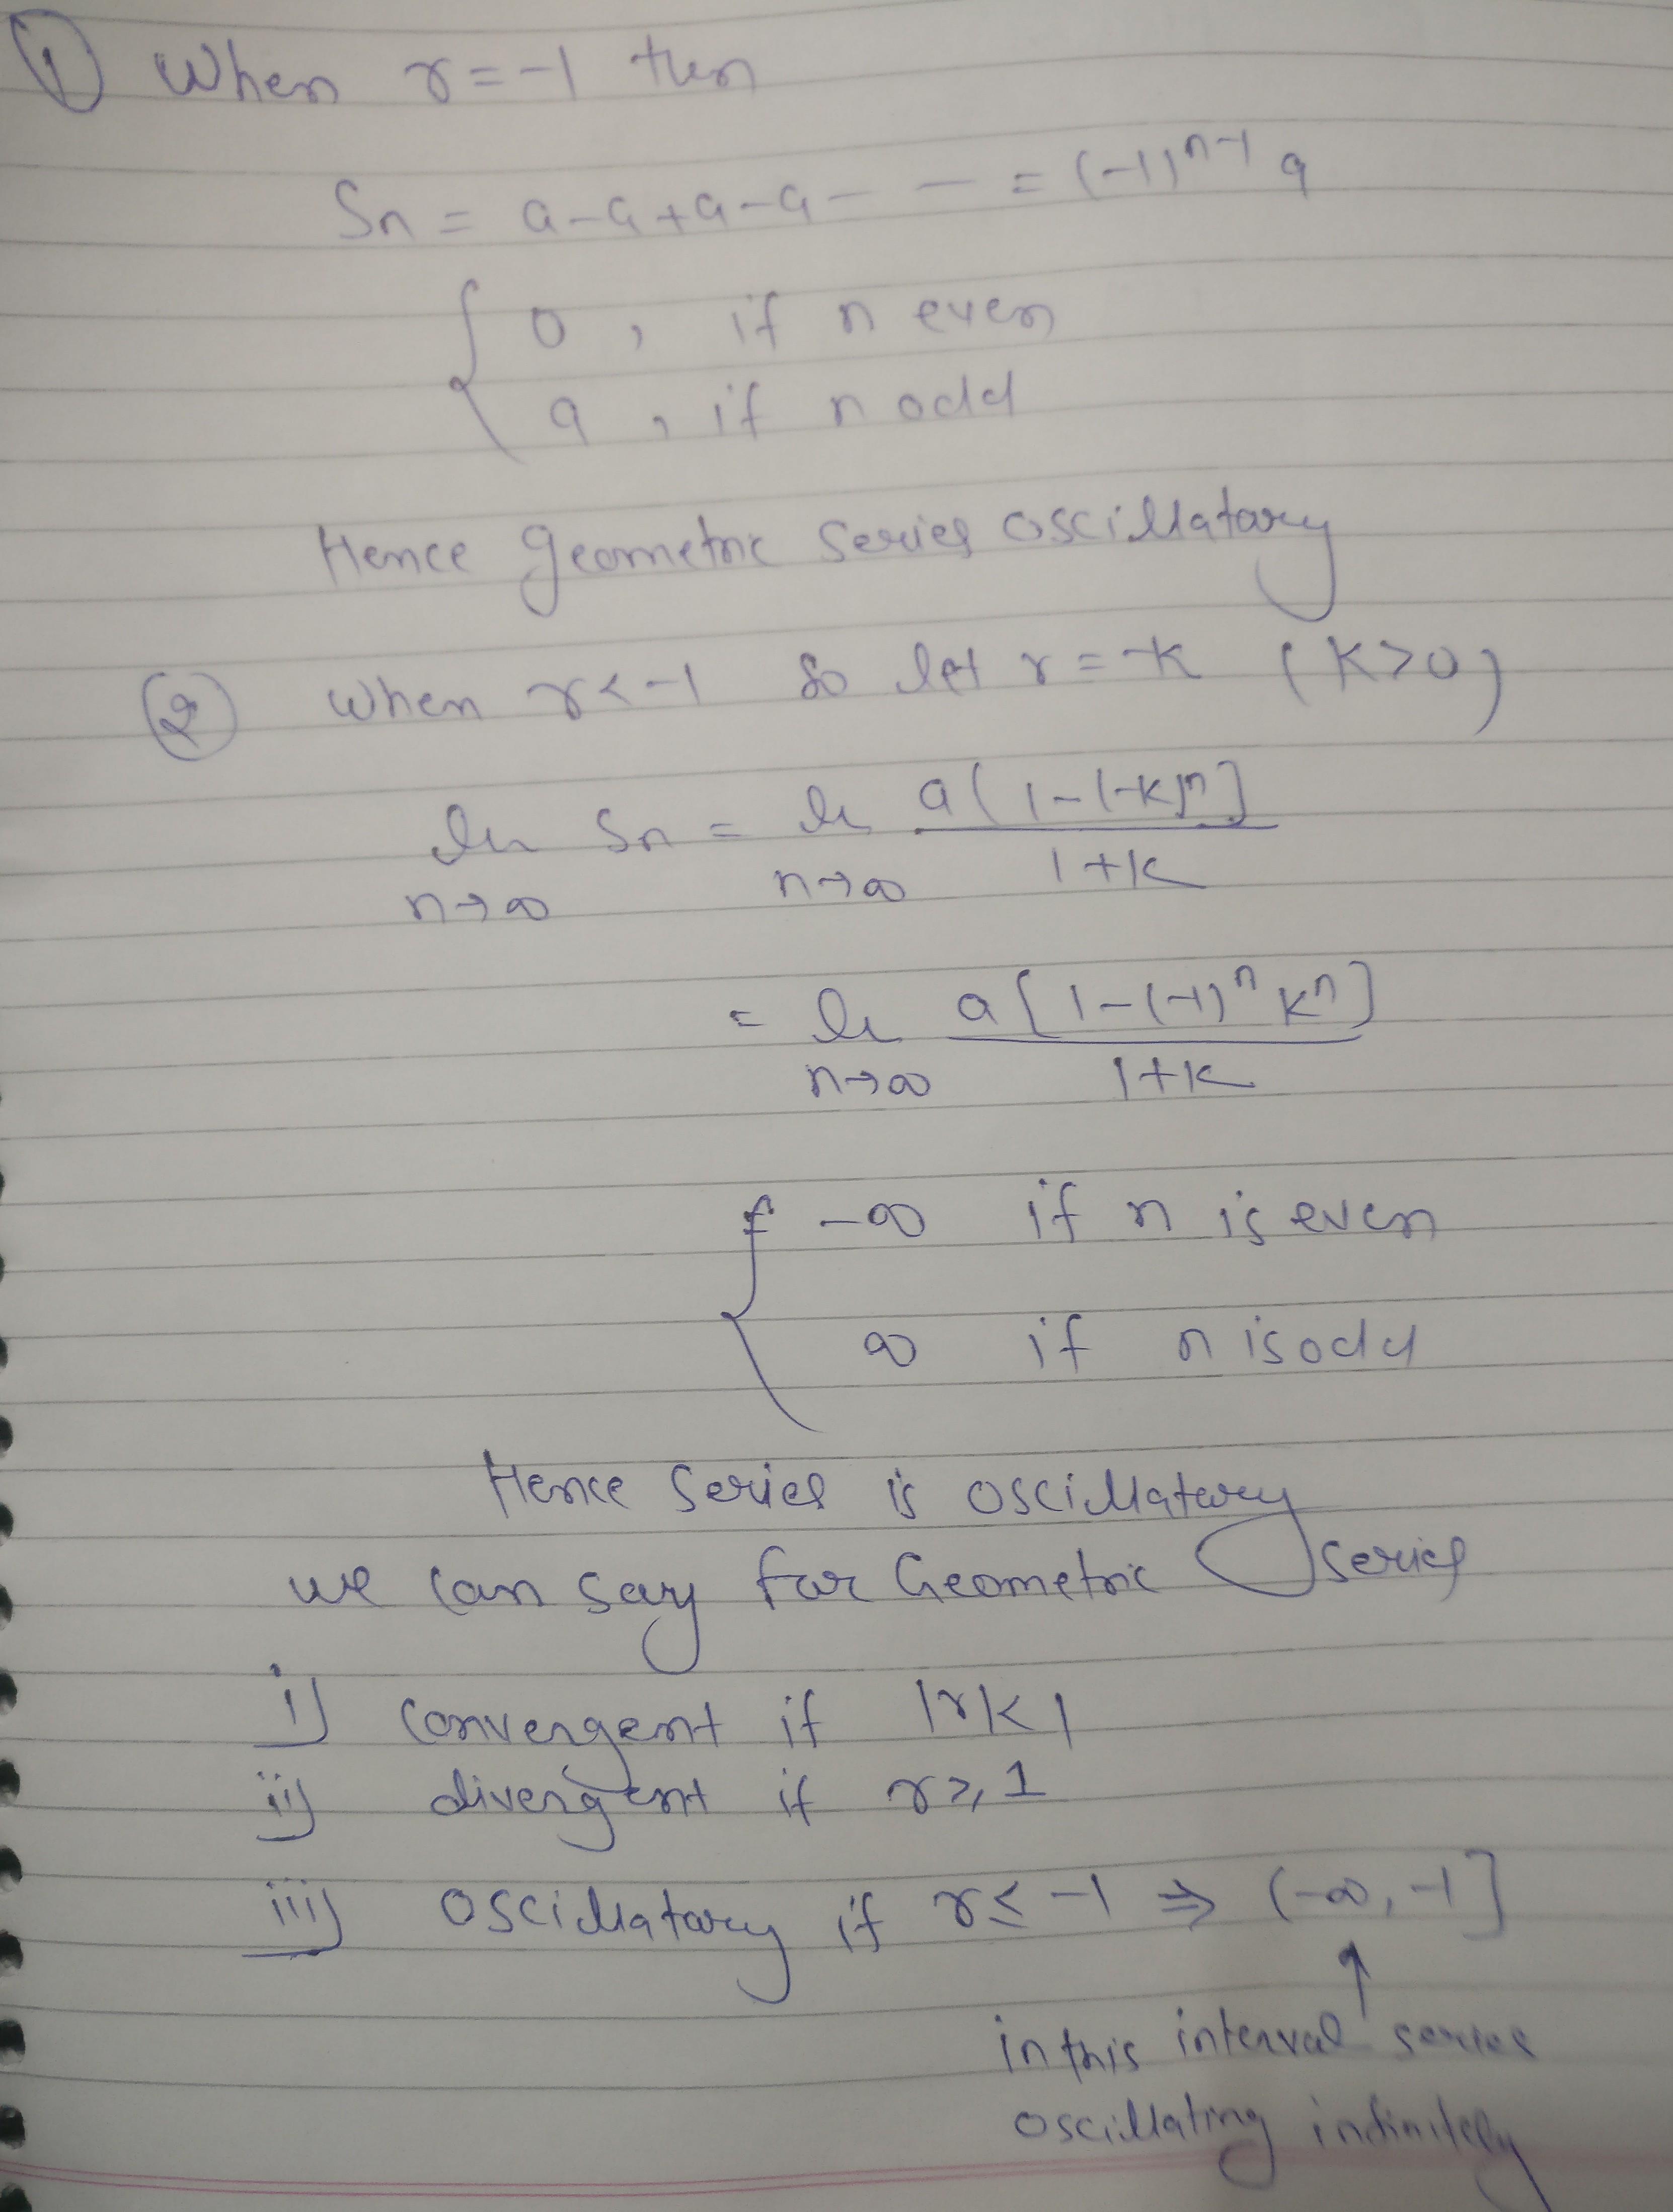 ① When r=-1 then
Sn = a-a+a-a- - = (-1)ⁿ⁻¹ a
{ 0 , if n even
a , if n odd
Hence geometric series oscillatary
② When r<-1 So let r=-k (k>0)
lim Sn = lim a[1-(-k)ⁿ] / 1+k
n→∞ n→∞
= lim a[1-(-1)ⁿ kⁿ] / 1+k
n→∞
{ -∞ if n is even
∞ if n is odd
Hence series is oscillatary
we can say for Geometric series
i) convergent if |r|<1
ii) divergent if r≥1
iii) oscillatary if r≤-1 ⇒ (-∞,-1]
↑
in this interval series
oscillating infinitely